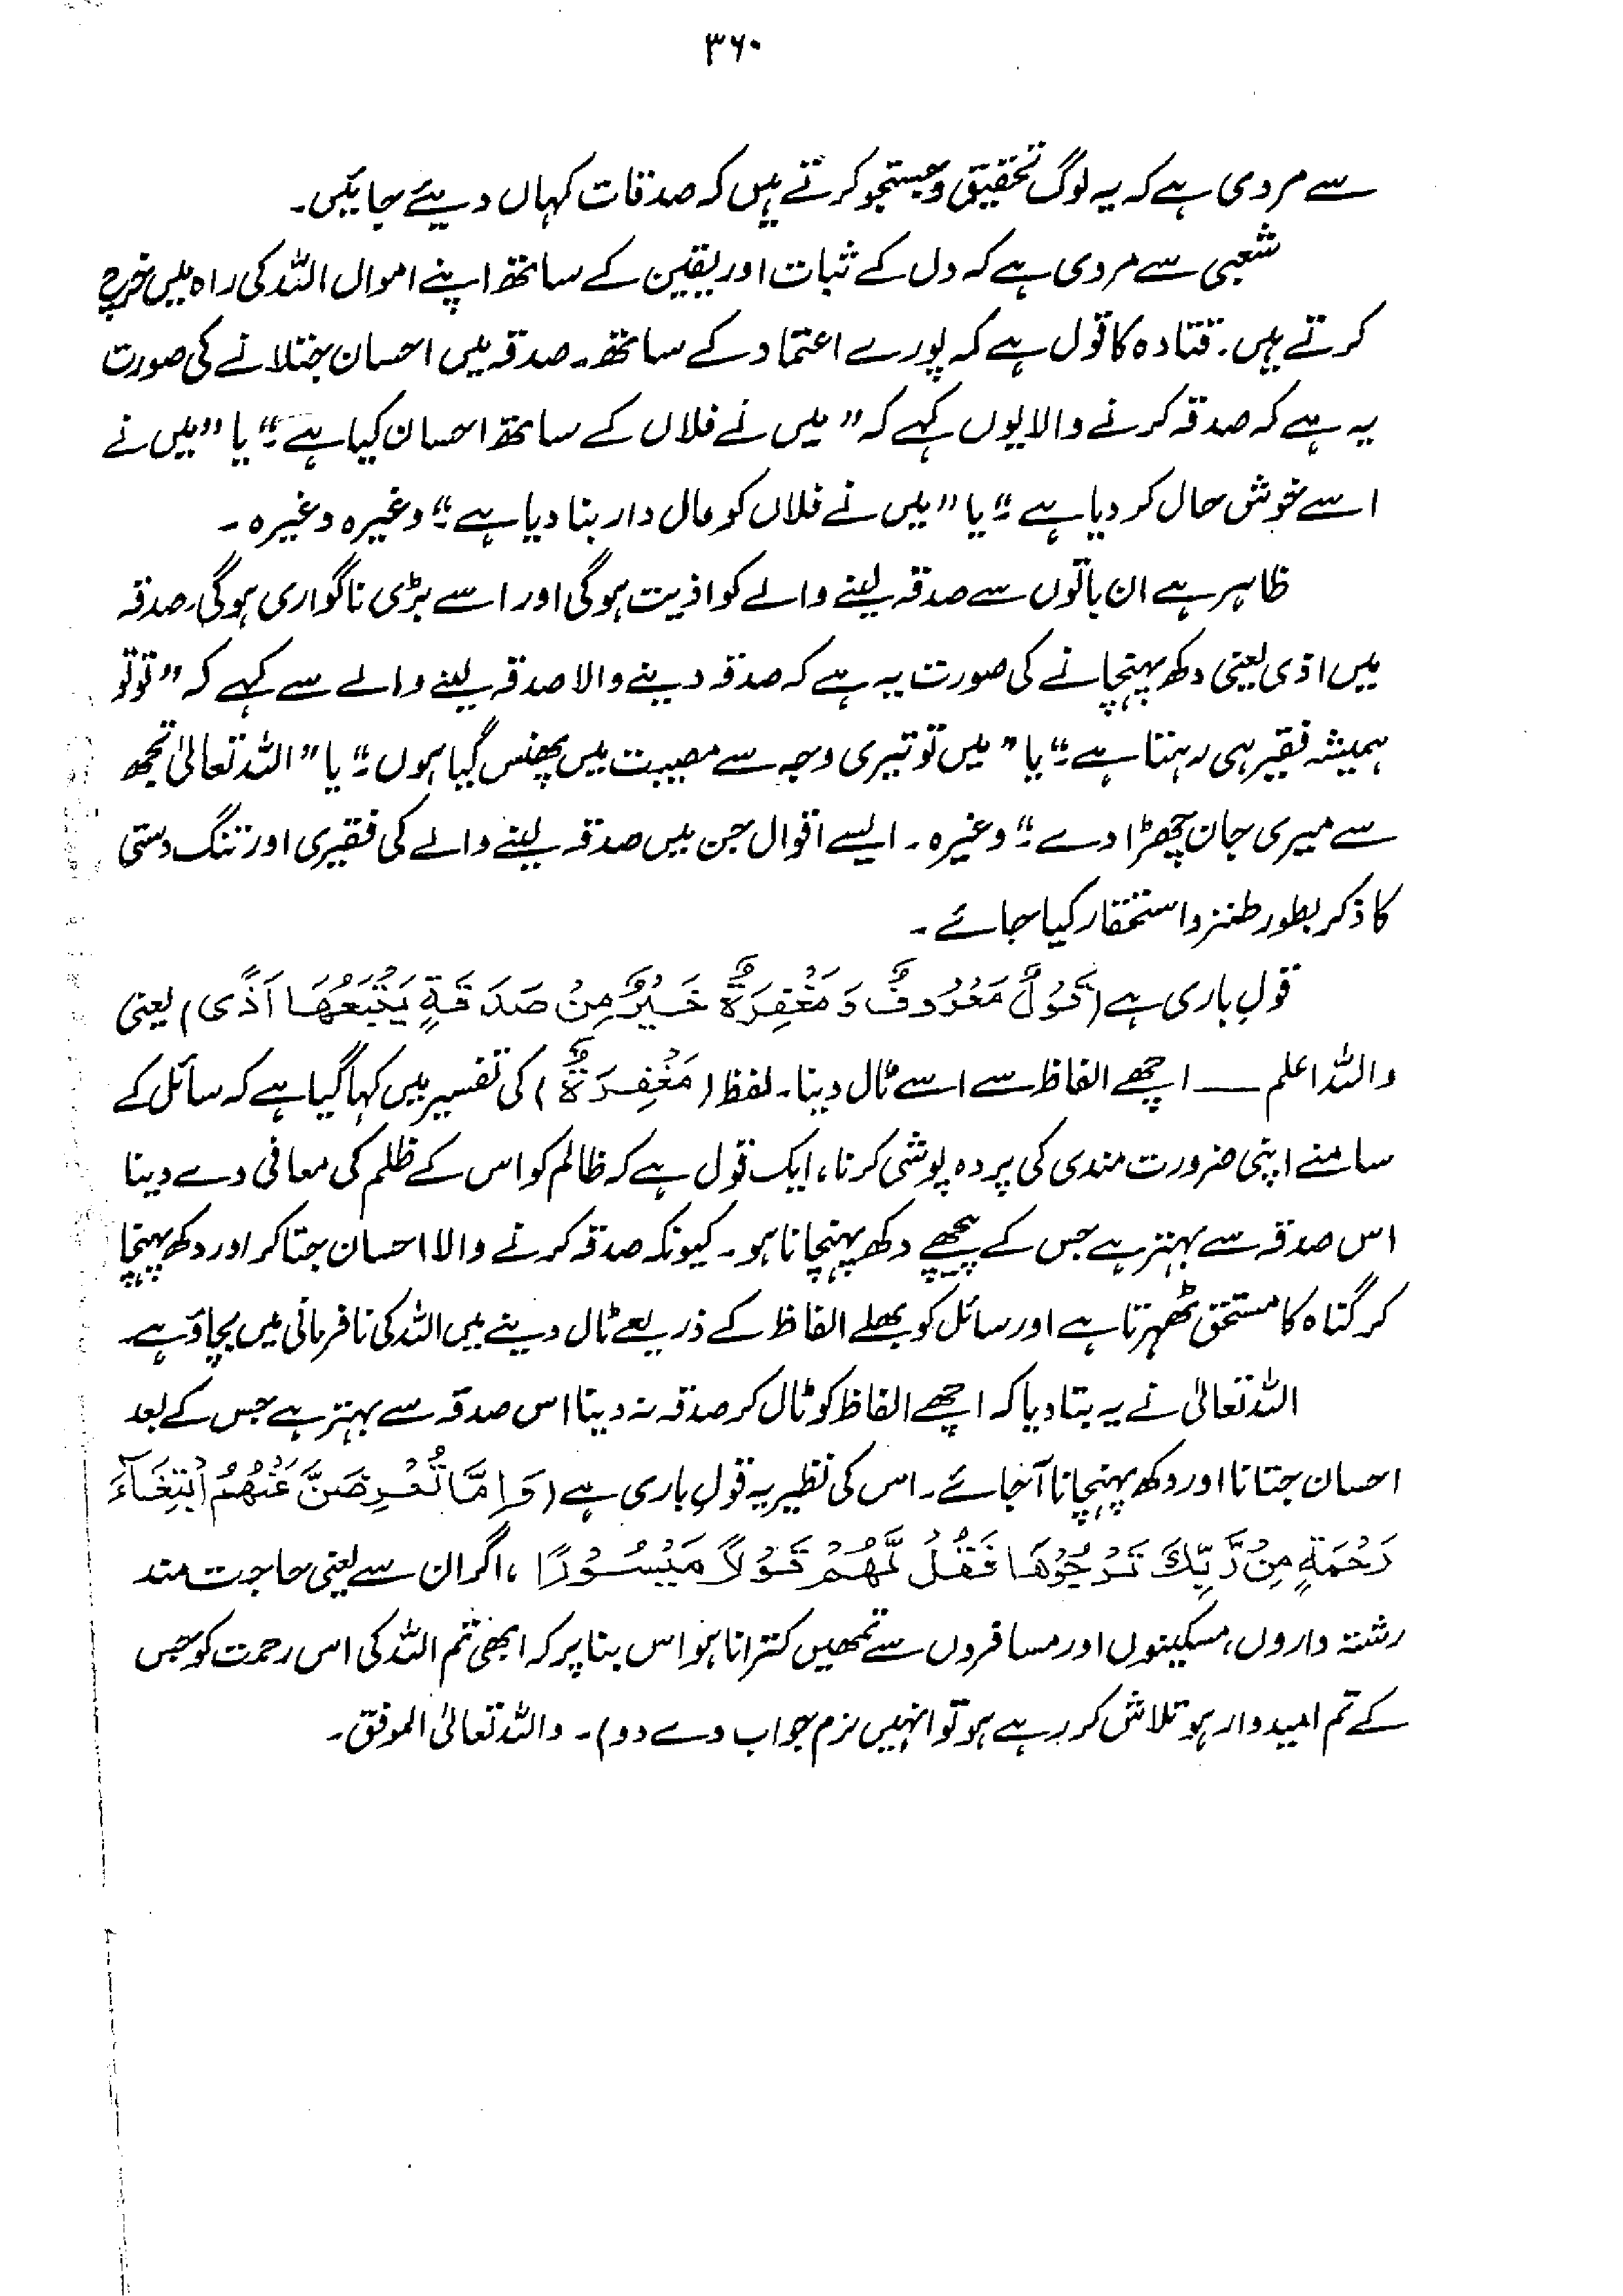 ۳۶۰
سے مروی ہے کہ یہ لوگ تحقیق و جستجو کرتے ہیں کہ صدقات کہاں دیئے جائیں۔
شعبی سے مروی ہے کہ دل کے ثبات اور یقین کے ساتھ اپنے اموال اللہ کی راہ میں خرچ
کرتے ہیں۔ قتادہ کا قول ہے کہ پورے اعتماد کے ساتھ۔ صدقہ میں احسان جتلانے کی صورت
یہ ہے کہ صدقہ کرنے والا یوں کہے کہ ”میں نے فلاں کے ساتھ احسان کیا ہے“ یا ”میں نے
اسے خوش حال کر دیا ہے“ یا ”میں نے فلاں کو مال دار بنا دیا ہے“ وغیرہ وغیرہ۔
ظاہر ہے ان باتوں سے صدقہ لینے والے کو اذیت ہوگی اور اسے بڑی ناگواری ہوگی۔ صدقہ
میں اذی یعنی دکھ پہنچانے کی صورت یہ ہے کہ صدقہ دینے والا صدقہ لینے والے سے کہے کہ ”تو تو
ہمیشہ فقیر ہی رہتا ہے“ یا ”میں تو تیری وجہ سے مصیبت میں پھنس گیا ہوں“ یا ”اللہ تعالیٰ تجھ
سے میری جان چھڑا دے“ وغیرہ۔ ایسے اقوال جن میں صدقہ لینے والے کی فقیری اور تنگ دستی
کا ذکر بطور طنز و استحقار کیا جائے۔
قولِ باری ہے (قَوْلٌ مَعْرُوفٌ وَمَغْفِرَةٌ خَيْرٌ مِنْ صَدَقَةٍ يَتْبَعُهَا اَذًى) یعنی
واللہ اعلم ــــ اچھے الفاظ سے اسے ٹال دینا۔ لفظ (مَغْفِرَةٌ) کی تفسیر میں کہا گیا ہے کہ سائل کے
سامنے اپنی ضرورت مندی کی پردہ پوشی کرنا، ایک قول ہے کہ ظالم کو اس کے ظلم کی معافی دے دینا
اس صدقہ سے بہتر ہے جس کے پیچھے دکھ پہنچانا ہو۔ کیونکہ صدقہ کرنے والا احسان جتا کر اور دکھ پہنچا
کر گناہ کا مستحق ٹھہرتا ہے اور سائل کو بھلے الفاظ کے ذریعے ٹال دینے میں اللہ کی نافرمانی میں بچاؤ ہے۔
اللہ تعالیٰ نے یہ بتا دیا کہ اچھے الفاظ کو ٹال کر صدقہ نہ دینا اس صدقہ سے بہتر ہے جس کے بعد
احسان جتانا اور دکھ پہنچانا آ جائے۔ اس کی نظیر یہ قولِ باری ہے (وَاِمَّا تُعْرِضَنَّ عَنْهُمُ ابْتِغَآءَ
رَحْمَةٍ مِنْ رَّبِّكَ تَرْجُوْهَا فَقُلْ لَّهُمْ قَوْلاً مَيْسُوْرًا ، اگر ان سے یعنی حاجت مند
رشتہ داروں، مسکینوں اور مسافروں سے تمھیں کترانا ہو اس بنا پر کہ ابھی تم اللہ کی اس رحمت کو جس
کے تم امیدوار ہو تلاش کر رہے ہو تو انہیں نرم جواب دے دو)۔ واللہ تعالیٰ الموفق۔